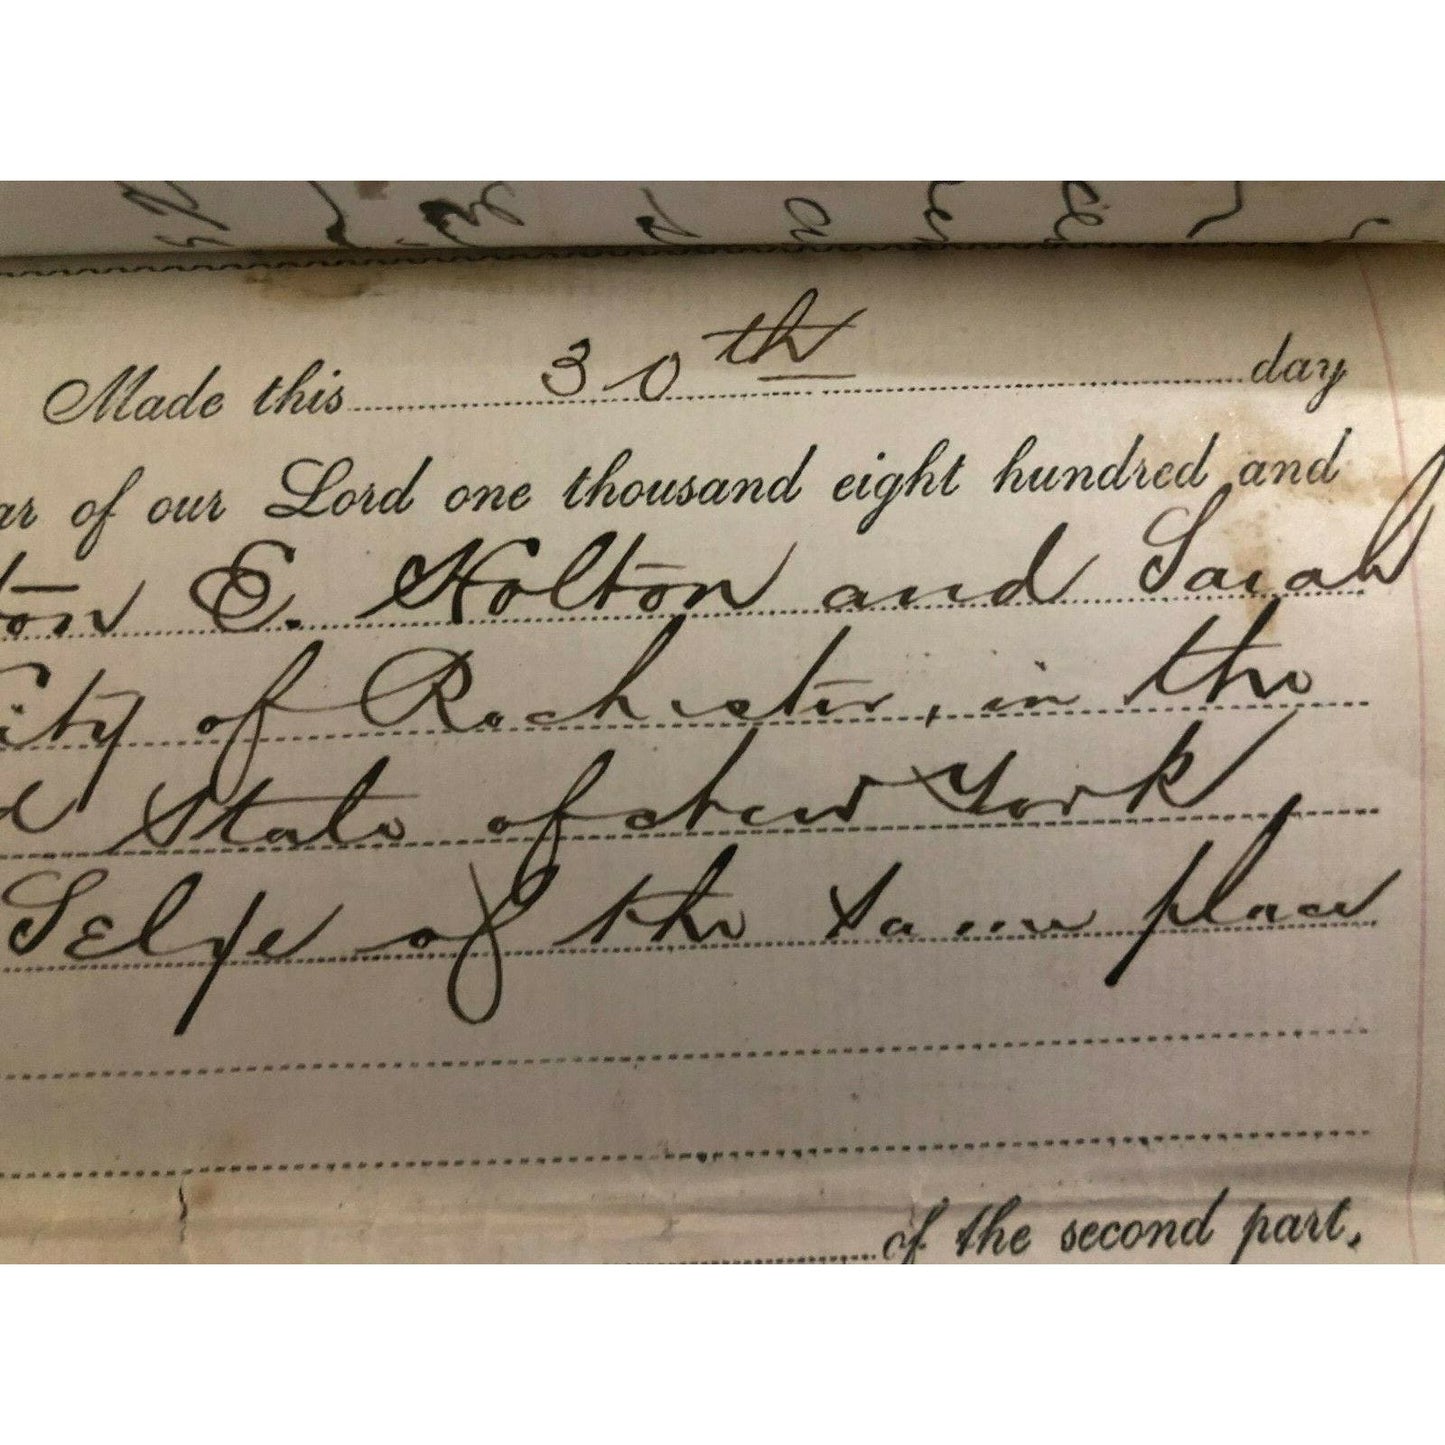 Made this 30th day
ar of our Lord one thousand eight hundred and
ton E. Holton and Sarah
ity of Rochester, in the
d State of New York,
Selye of the same place
of the second part.